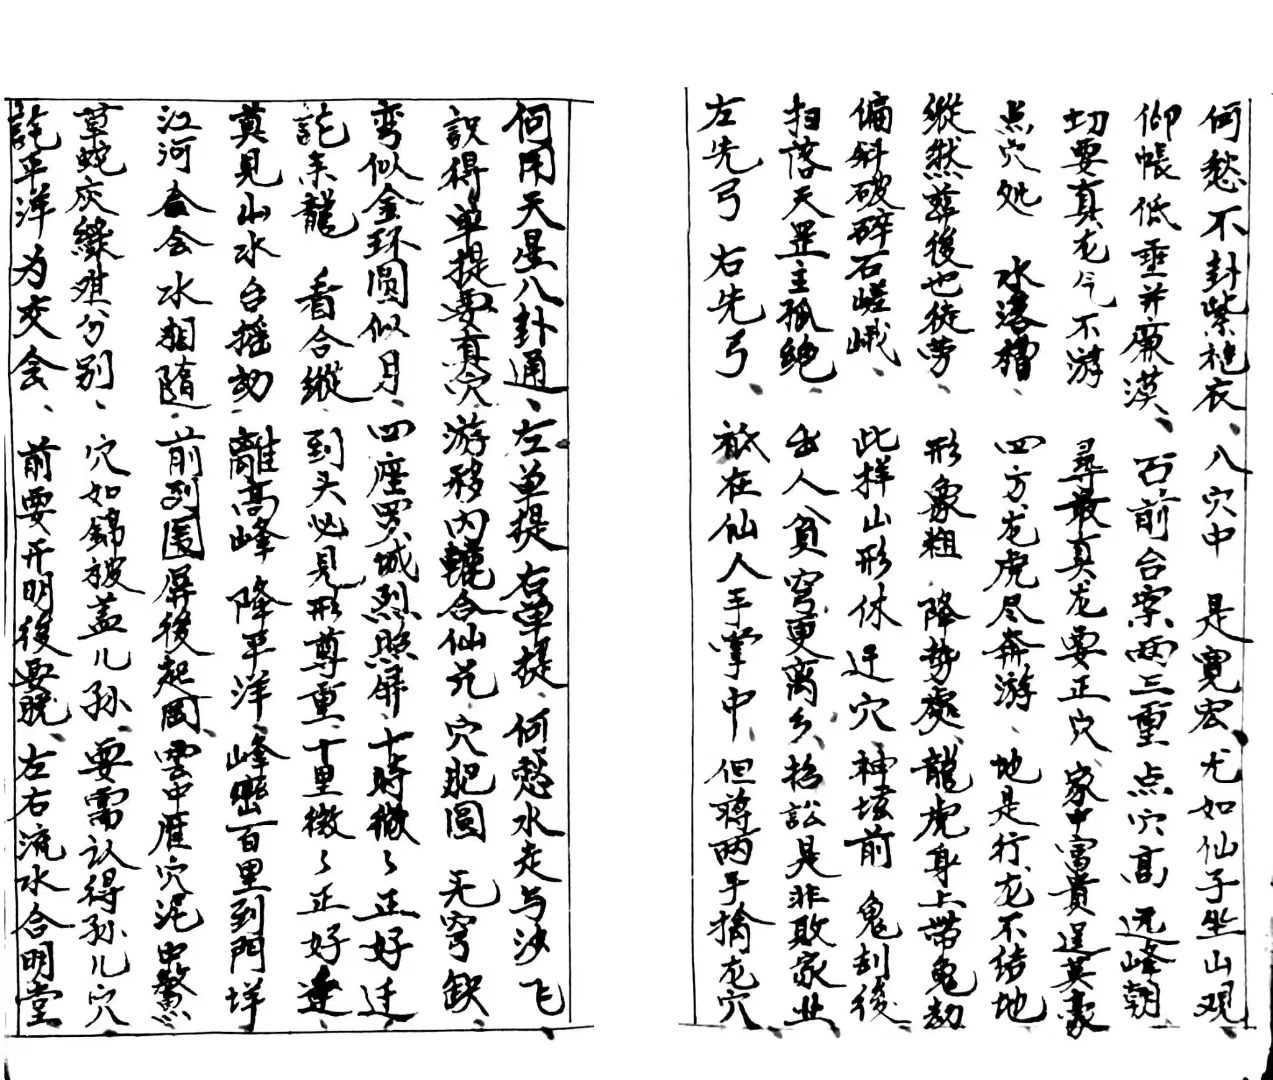 何愁不封紫袍衣、八穴中 是寬宏、尤如仙子坐山观
仰帳低垂并廉漠、石前台案两三重 点穴高 远峰朝
切要真龙气不游 尋最真龙要正穴 家中富貴逞英豪
点穴处 水滚槽 四方龙虎尽奔游、地是行龙不结地
縱然葬後也徒劳、形象粗 降势處、龍虎身上带鬼劫
偏斜破碎石嵯峨、此样山形休迁穴 神墳前 鬼刮後
扫落天罡主孤絶、出人貧窮更离乡、招訟是非敗家业
左先弓 右先弓、祗在仙人手掌中、但蔣两手擒龙穴
何用天星八卦通、左单提 右单提、何愁水走与沙飞
設得单提要真穴、游移内轆合仙花、穴肥圆 无穷缺
弯似金环圆似月、四座罗城烈照屏、十時微々正好迁
說来龍 看合縱、到头必见形尊重、十里微々正好逢
莫见山水台摇动、離高峰 降平洋、峰巒百里到門垟
江河合会水相隨、前列围屏後起岡、雲中雁穴泥中鰲
草蛇灰線難分别、穴如錦被盖儿孙、要需认得孙儿穴
說平洋为交会、前要开明後要脱、左右流水合明堂